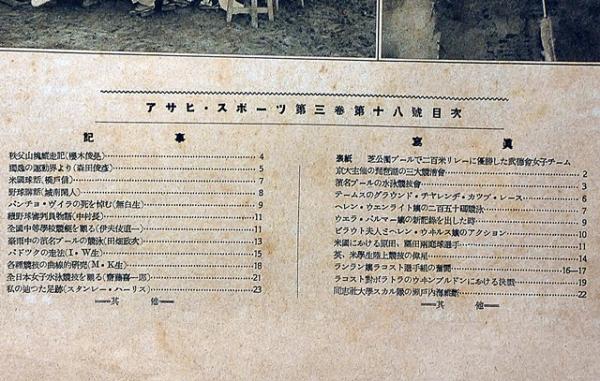 アサヒ・スポーツ第三巻第十八號目次
記事
秩父山塊縱走記(櫻木俊晃) 4
(森田俊彥) 5
米國球 (橋戶信) 7
野球 (城南閑人) 8
パンチョ・ヴイラの死を悼む(無白生) 9
續野球審判員物語(中村長) 11
全國中等學校競艇を觀る(伊夫伎直一) 11
豪雨中の濱名プールの競泳(田畑政次) 13
パドツクの走法(I・W生) 15
各種競技の曲線的硏究(M・K生) 18
全日本女子水泳競技を觀る(齋藤 一郞) 21
私の辿つた足跡(スタンレー・ハーリス) 23
其他
寫眞
表紙 芝公園プールで二百米リレーに優勝した武德會女子チーム
京大主催の琵琶湖の三大競漕會 2
濱名プールの水泳競技會 3
テームスのグラウンド・チヤレンヂ・カツプ・レース 6
ヘレン・ウエンライト孃の二百五十碼競泳 7
ウエラ・パルマー孃の新記錄を出した時 9
ビラウト夫人とヘレン・ウ井ルス孃のアクション 10
米國における原田、福田兩庭球選手 11
英、米學生陸上競技の偉星 14
ランラン孃ラコスト選手組の奮鬪 16—17
ラコスト對ボラトラのウ井ンブルドンにおける決戰 19
同志社大學スカル隊の瀨戶內海 22
其他